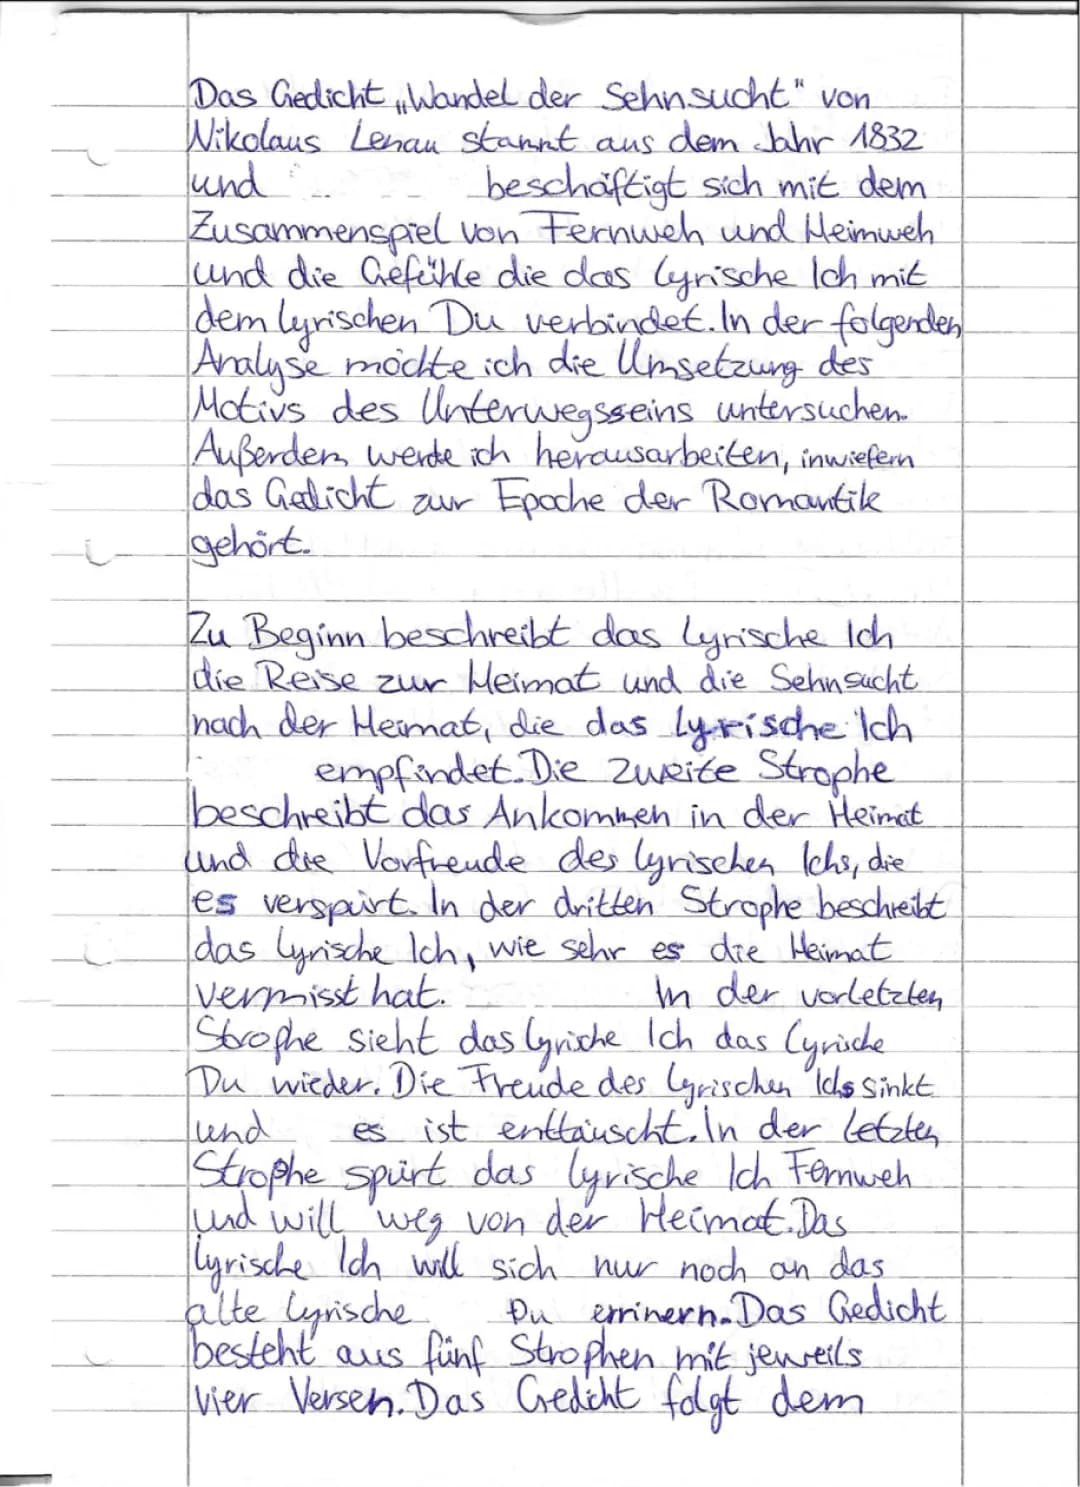 Das Gedicht „Wandel der Sehnsucht" von
Nikolaus Lenau stammt aus dem Jahr 1832
und beschäftigt sich mit dem
Zusammenspiel von Fernweh und Heimweh
und die Gefühle die das lyrische Ich mit
dem lyrischen Du verbindet. In der folgenden
Analyse möchte ich die Umsetzung des
Motivs des Unterwegsseins untersuchen.
Außerdem werde ich herausarbeiten, inwiefern
das Gedicht zur Epoche der Romantik
gehört.
Zu Beginn beschreibt das lyrische Ich
die Reise zur Heimat und die Sehnsucht
nach der Heimat, die das lyrische Ich
empfindet. Die zweite Strophe
beschreibt das Ankommen in der Heimat
und die Vorfreude des lyrischen Ichs, die
es verspürt. In der dritten Strophe beschreibt
das lyrische Ich, wie sehr es die Heimat
vermisst hat. In der vorletzten
Strophe sieht das lyrische Ich das lyrische
Du wieder. Die Freude des lyrischen Ichs sinkt
und es ist enttäuscht. In der letzten
Strophe spürt das lyrische Ich Fernweh
und will weg von der Heimat. Das
lyrische Ich will sich nur noch an das
alte lyrische Du errinern. Das Gedicht
besteht aus fünf Strophen mit jeweils
vier Versen. Das Gedicht folgt dem